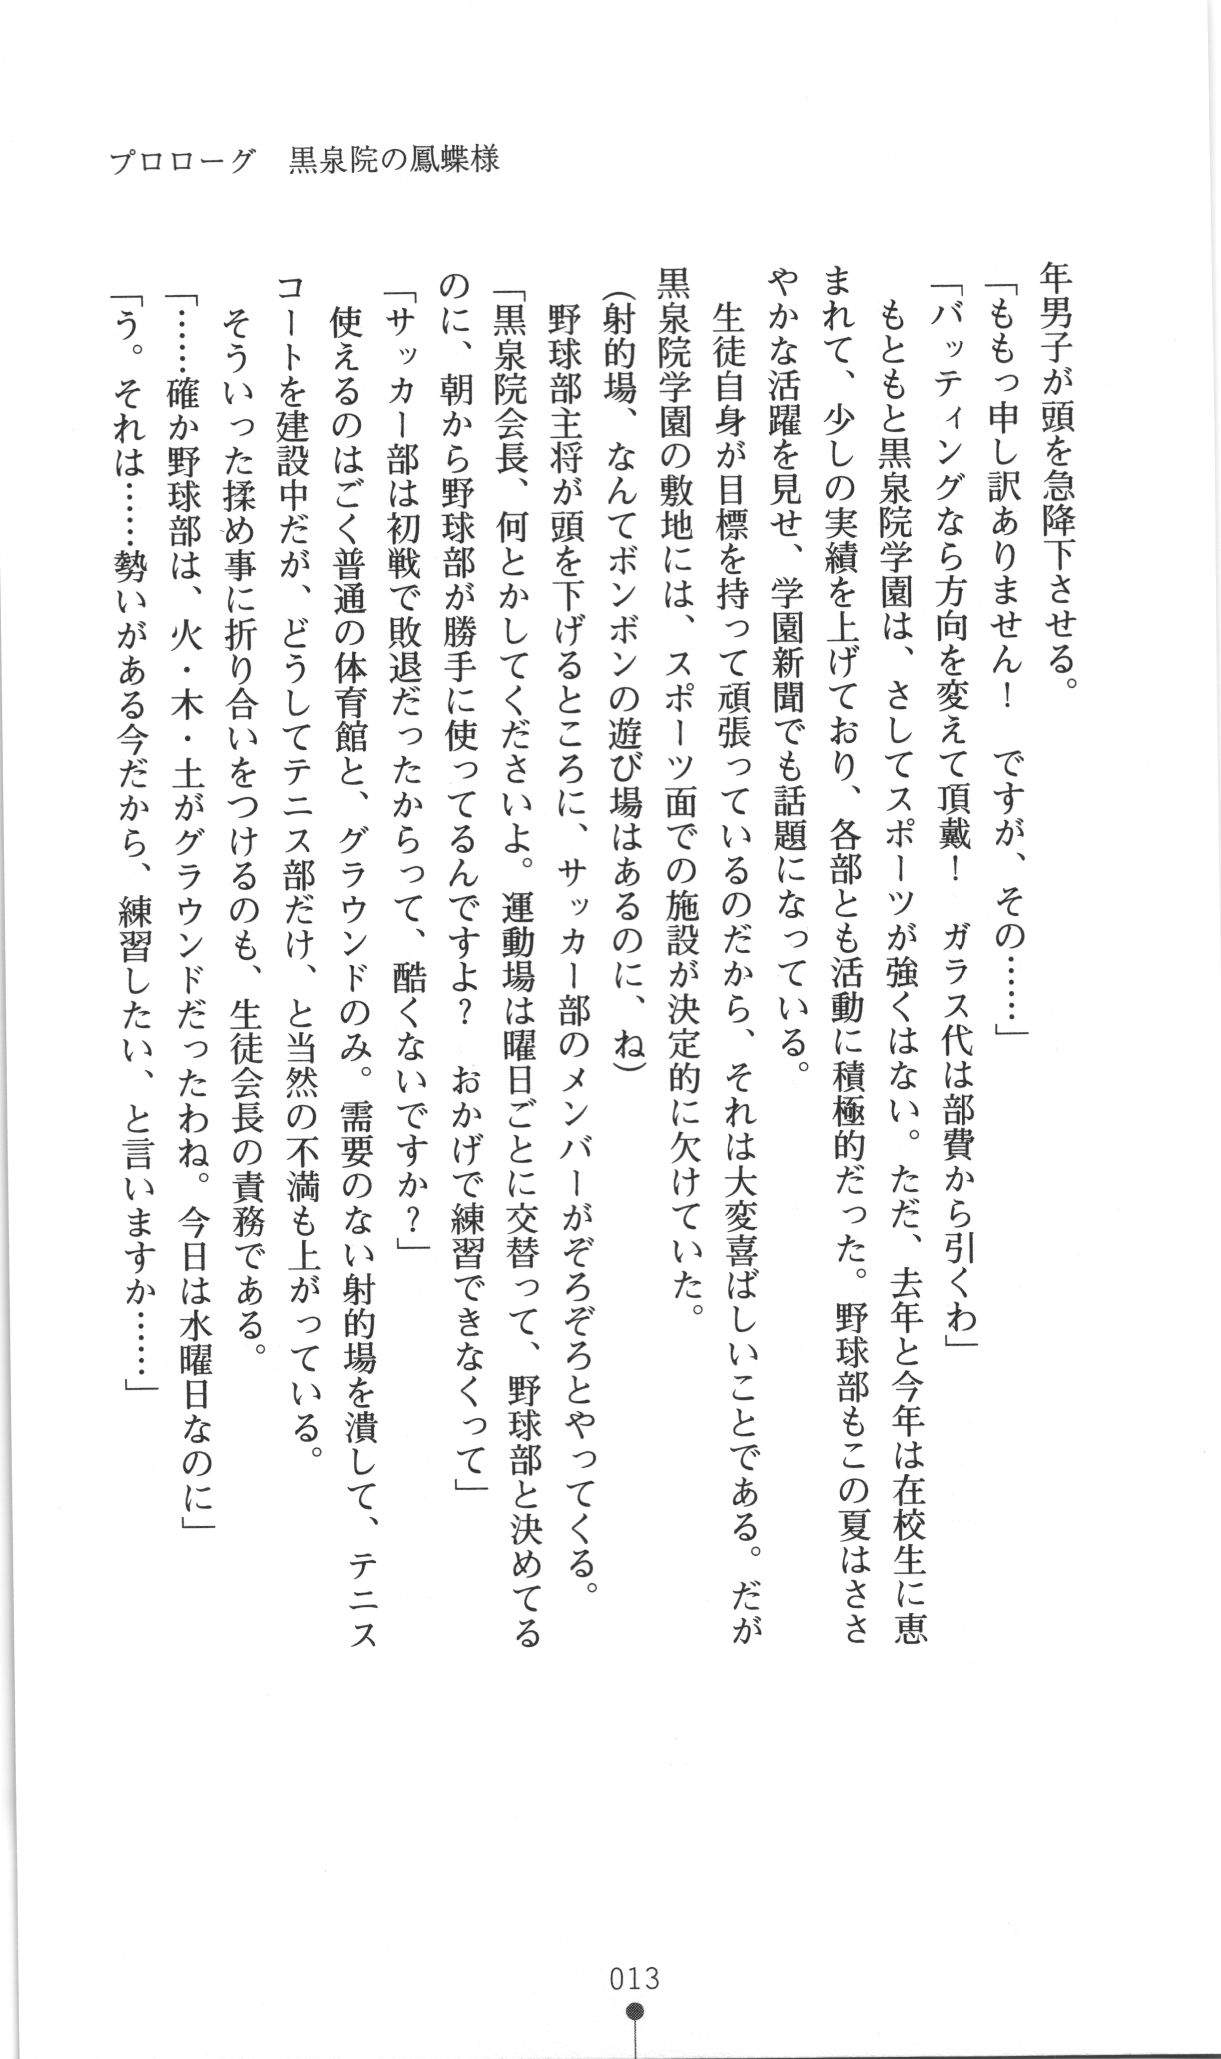 プロローグ　黒泉院の鳳蝶様
年男子が頭を急降下させる。
「ももっ申し訳ありません！　ですが、その……」
「バッティングなら方向を変えて頂戴！　ガラス代は部費から引くわ」
　もともと黒泉院学園は、さしてスポーツが強くはない。ただ、去年と今年は在校生に恵
まれて、少しの実績を上げており、各部とも活動に積極的だった。野球部もこの夏はささ
やかな活躍を見せ、学園新聞でも話題になっている。
　生徒自身が目標を持って頑張っているのだから、それは大変喜ばしいことである。だが
黒泉院学園の敷地には、スポーツ面での施設が決定的に欠けていた。
（射的場、なんてボンボンの遊び場はあるのに、ね）
　野球部主将が頭を下げるところに、サッカー部のメンバーがぞろぞろとやってくる。
「黒泉院会長、何とかしてくださいよ。運動場は曜日ごとに交替って、野球部と決めてる
のに、朝から野球部が勝手に使ってるんですよ？　おかげで練習できなくって」
「サッカー部は初戦で敗退だったからって、酷くないですか？」
　使えるのはごく普通の体育館と、グラウンドのみ。需要のない射的場を潰して、テニス
コートを建設中だが、どうしてテニス部だけ、と当然の不満も上がっている。
　そういった揉め事に折り合いをつけるのも、生徒会長の責務である。
「……確か野球部は、火・木・土がグラウンドだったわね。今日は水曜日なのに」
「う。それは……勢いがある今だから、練習したい、と言いますか……」
013